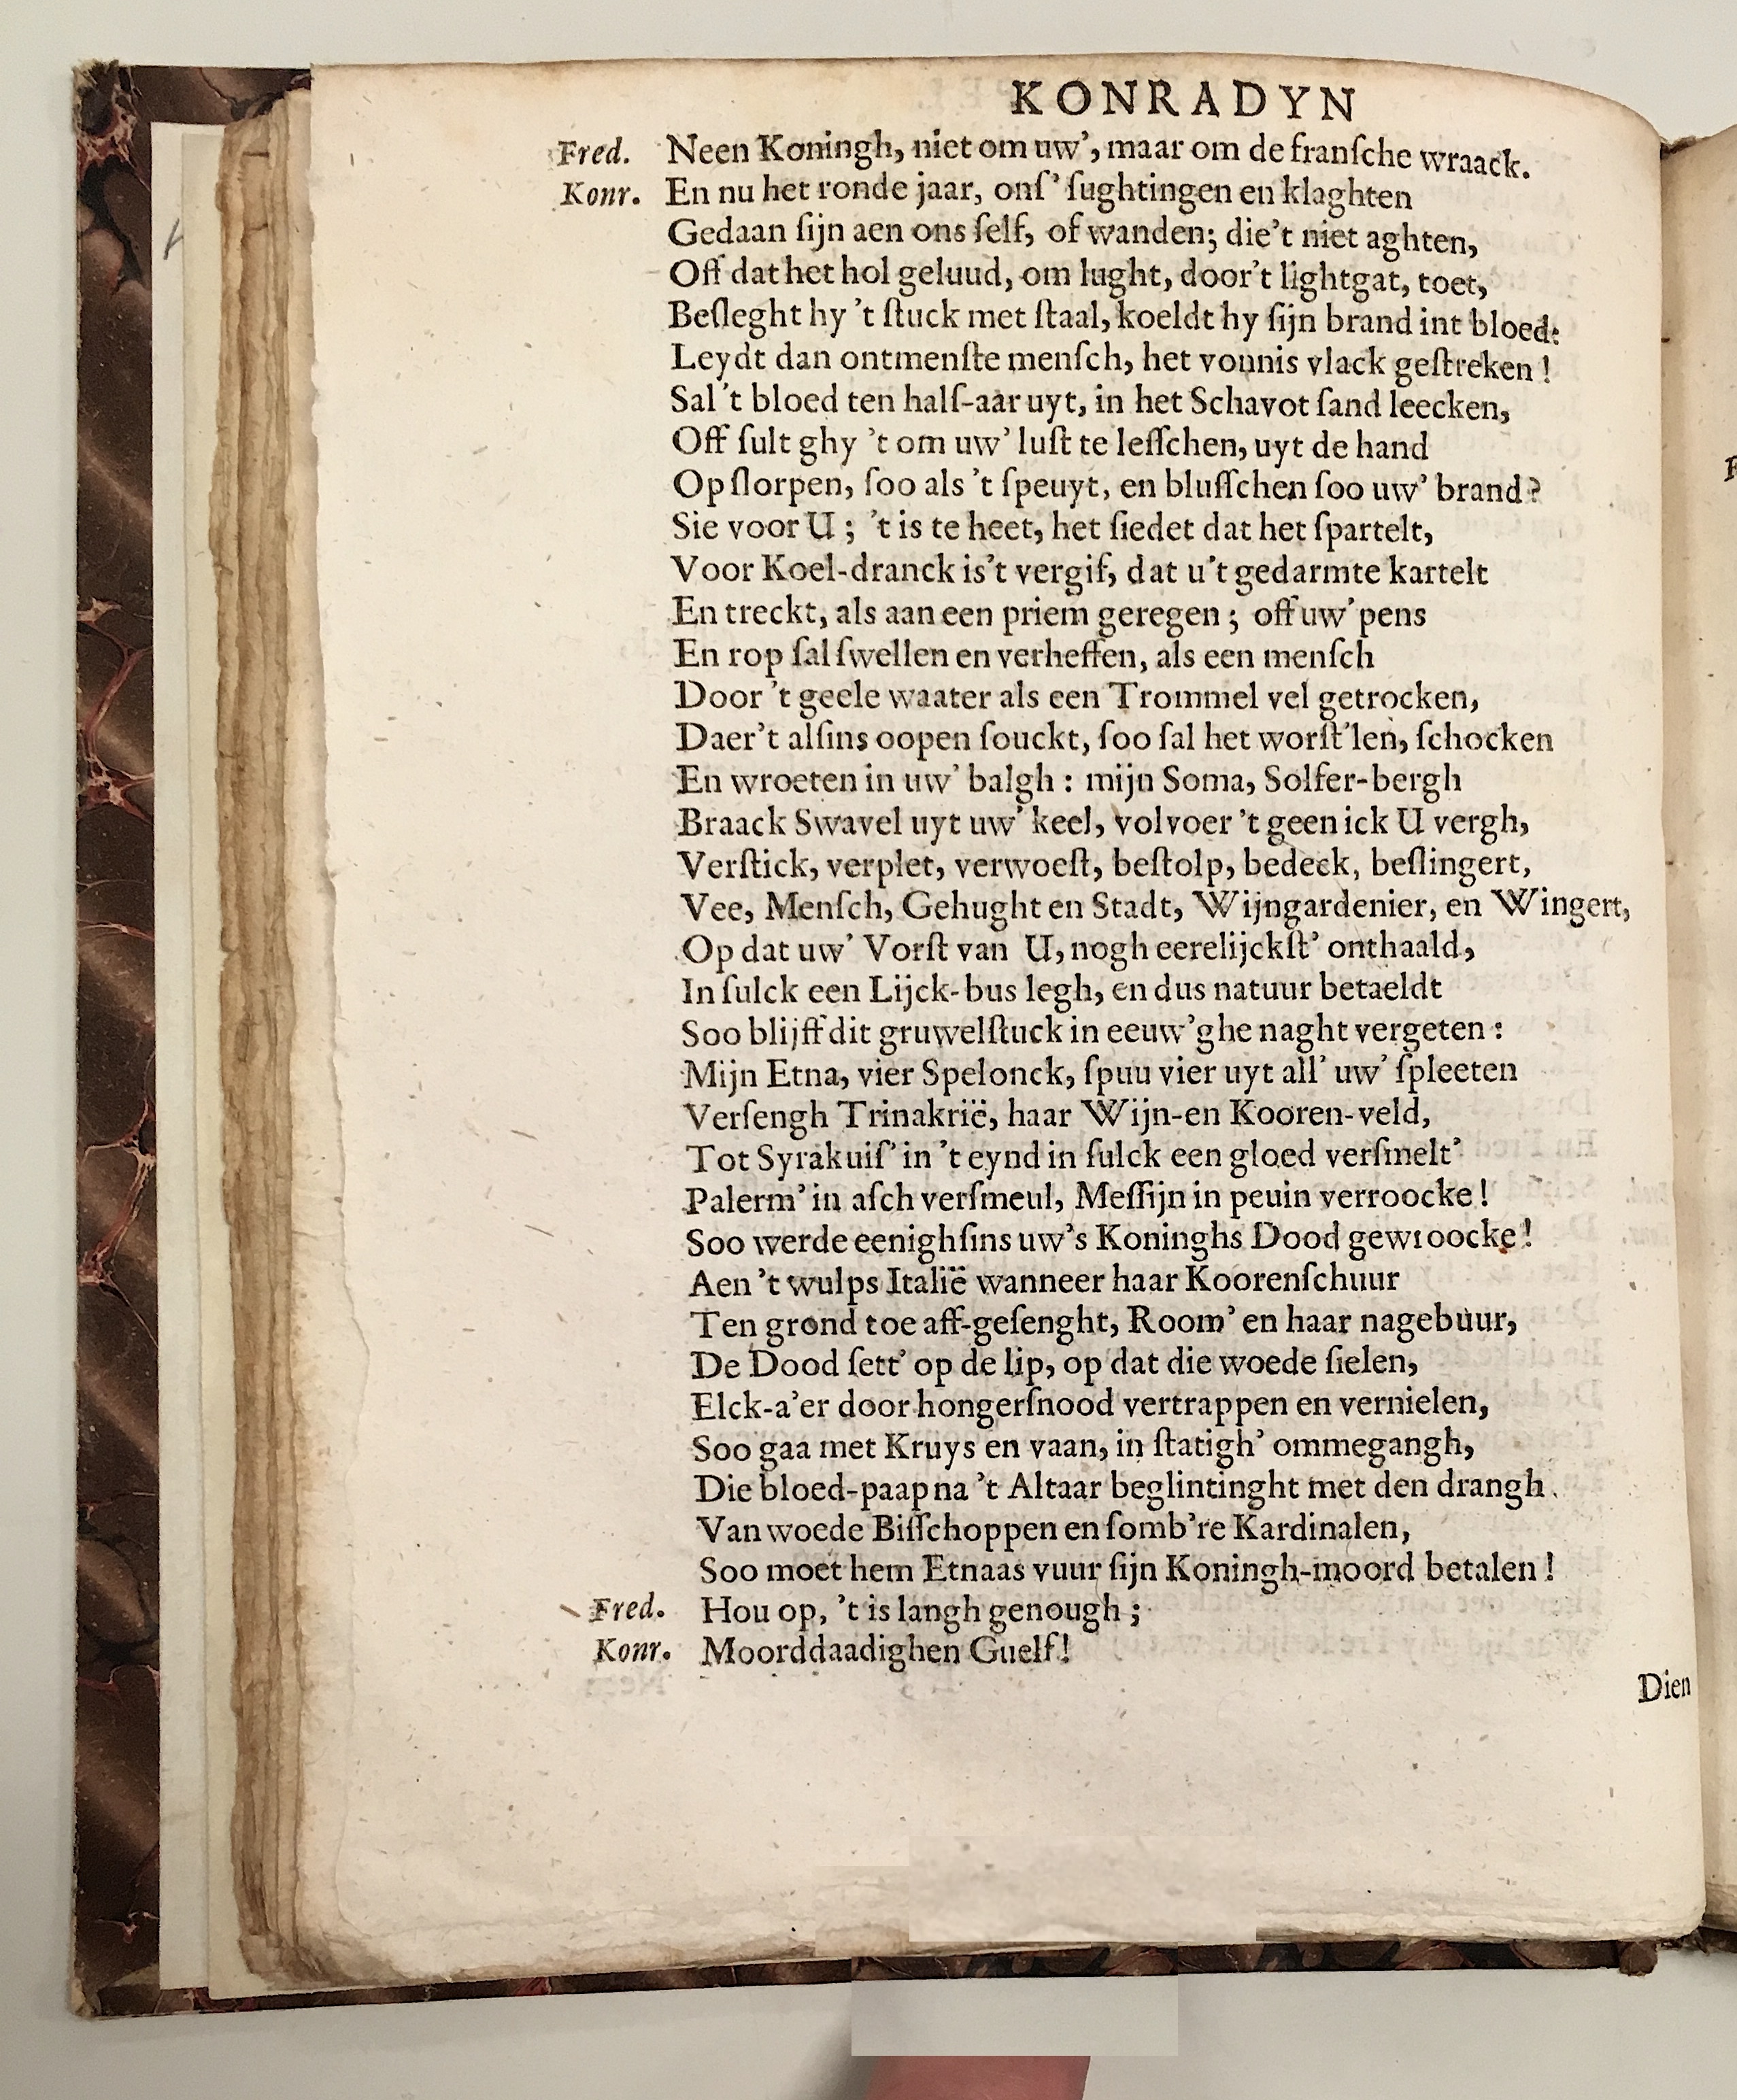 KONRADYN
Fred. Neen Koningh, niet om uw’, maar om de franſche wraack.
Konr. En nu het ronde jaar, onſ’ ſughtingen en klaghten
Gedaan ſijn aen ons ſelf, of wanden; die’t niet aghten,
Off dat het hol geluud, om lught, door’t lightgat, toet,
Beſleght hy ’t ſtuck met ſtaal, koeldt hy ſijn brand int bloed:
Leydt dan ontmenſte menſch, het vonnis vlack geſtreken!
Sal ’t bloed ten halſ-aar uyt, in het Schavot ſand leecken,
Off ſult ghy ’t om uw’ luſt te leſſchen, uyt de hand
Op ſlorpen, ſoo als ’t ſpeuyt, en bluſſchen ſoo uw’ brand?
Sie voor U; ’t is te heet, het ſiedet dat het ſpartelt,
Voor Koel-dranck is’t vergif, dat u’t gedarmte kartelt
En treckt, als aan een priem geregen; off uw’ pens
En rop ſal ſwellen en verheffen, als een menſch
Door ’t geele waater als een Trommel vel getrocken,
Daer’t alſins oopen ſouckt, ſoo ſal het worſt’len, ſchocken
En wroeten in uw’ balgh: mijn Soma, Solfer-bergh
Braack Swavel uyt uw’ keel, volvoer ’t geen ick U vergh,
Verſtick, verplet, verwoeſt, beſtolp, bedeck, beſlingert,
Vee, Menſch, Gehught en Stadt, Wijngardenier, en Wingert,
Op dat uw’ Vorſt van U, nogh eerelijckſt’ onthaald,
In ſulck een Lijck-bus legh, en dus natuur betaeldt
Soo blijff dit gruwelſtuck in eeuw’ghe naght vergeten:
Mijn Etna, vier Spelonck, ſpuu vier uyt all’ uw’ ſpleeten
Verſengh Trinakrië, haar Wijn-en Kooren-veld,
Tot Syrakuiſ’ in ’t eynd in ſulck een gloed verſmelt’
Palerm’ in aſch verſmeul, Meſſijn in peuin verroocke!
Soo werde eenighſins uw’s Koninghs Dood gewroocke!
Aen ’t wulps Italië wanneer haar Koorenſchuur
Ten grond toe aff-geſenght, Room’ en haar nagebuur,
De Dood ſett’ op de lip, op dat die woede ſielen,
Elck-a’er door hongerſnood vertrappen en vernielen,
Soo gaa met Kruys en vaan, in ſtatigh’ ommegangh,
Die bloed-paap na ’t Altaar beglintinght met den drangh
Van woede Biſſchoppen en ſomb’re Kardinalen,
Soo moet hem Etnaas vuur ſijn Koningh-moord betalen!
Fred. Hou op, ’t is langh genough;
Konr. Moorddaadighen Guelf!
Dien